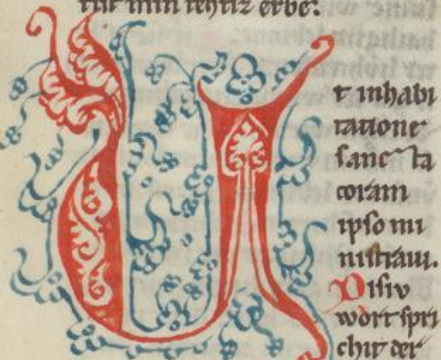 für min rehtiz erbe.
U
t inhabi
tatione
sancta
coram
ipso mi
nistraui.
Disiv
wort spri
chit der